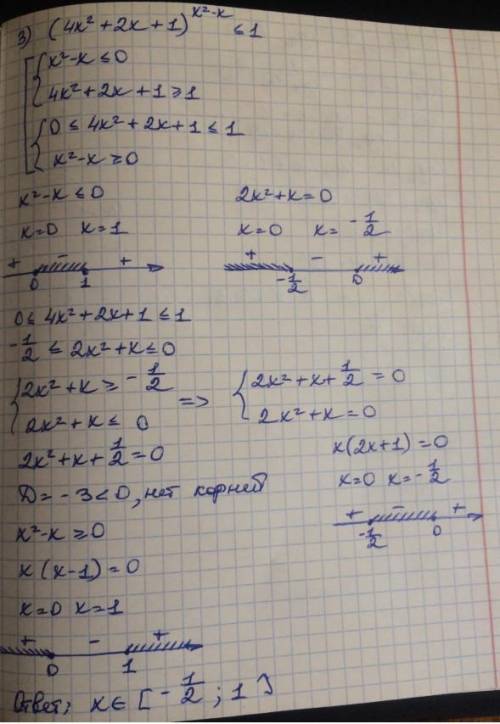 3) (4x²+2x+1)^(x²-x) ≤ 1
x²-x ≤ 0
4x²+2x+1 ≥ 1
0 ≤ 4x²+2x+1 ≤ 1
x²-x ≥ 0
x²-x ≤ 0
x=0 x=1
+ - +
0 1
2x²+x=0
x=0 x= -1/2
+ - +
-1/2 0
0 ≤ 4x²+2x+1 ≤ 1
-1/2 ≤ 2x²+x ≤ 0
2x²+x ≥ -1/2
2x²+x ≤ 0
=>
2x²+x+1/2 = 0
2x²+x=0
2x²+x+1/2=0
D= -3<0, нет корней
x(2x+1)=0
x=0 x=-1/2
+ - +
-1/2 0
x²-x ≥ 0
x(x-1)=0
x=0 x=1
+ - +
0 1
Ответ: x∈[-1/2; 1]